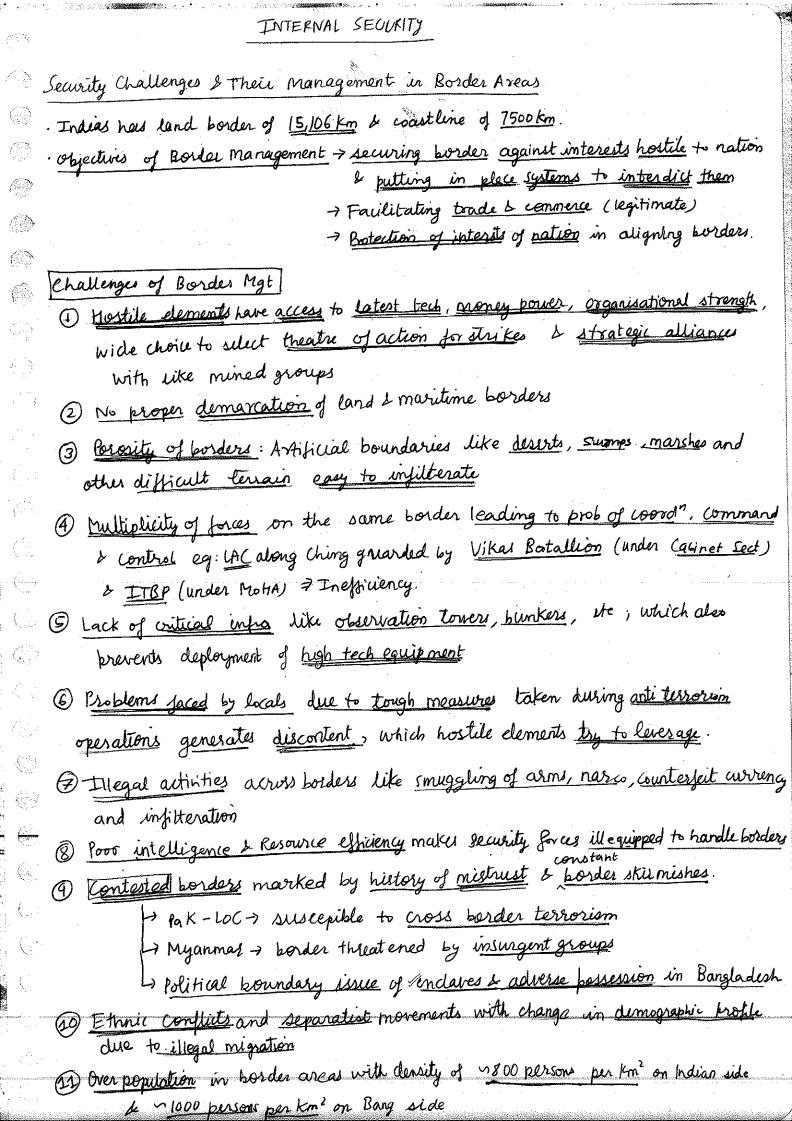 INTERNAL SECURITY
Security Challenges & Their Management in Border Areas
· Indias has land border of 15,106 Km & coastline of 7500 Km.
· Objectives of Border Management → securing border against interests hostile to nation
& putting in place systems to interdict them
→ Facilitating trade & commerce (legitimate)
→ Protection of interests of nation in aligning borders.
Challenges of Border Mgt
① Hostile elements have access to latest tech, money power, organisational strength,
wide choice to select theatre of action for strikes & strategic alliances
with like mined groups
② No proper demarcation of land & maritime borders
③ Porosity of borders : Artificial boundaries like deserts, swamps, marshes and
other difficult terrain easy to infilterate
④ Multiplicity of forces on the same border leading to prob of coordⁿ, command
& control eg: LAC along China guarded by Vikas Batallion (under Cabinet Sect)
& ITBP (under MoHA) ⇒ Inefficiency.
⑤ Lack of critical infra like observation towers, bunkers, etc ; which also
prevents deployment of high tech equipment
⑥ Problems faced by locals due to tough measures taken during anti terrorism
operations generates discontent, which hostile elements try to leverage.
⑦ Illegal activities across borders like smuggling of arms, narco, counterfeit currency
and infilteration
⑧ Poor intelligence & Resource efficiency makes security forces ill equipped to handle borders
⑨ Contested borders marked by history of mistrust & constant border skirmishes.
→ Pak - LOC → suscepible to cross border terrorism
→ Myanmar → border threatened by insurgent groups
→ Political boundary issue of enclaves & adverse possession in Bangladesh
⑩ Ethnic Conflicts and separatist movements with change in demographic profile
due to illegal migration
⑪ Over population in border areas with density of ~800 persons per Km² on Indian side
& ~1000 persons per Km² on Bang side